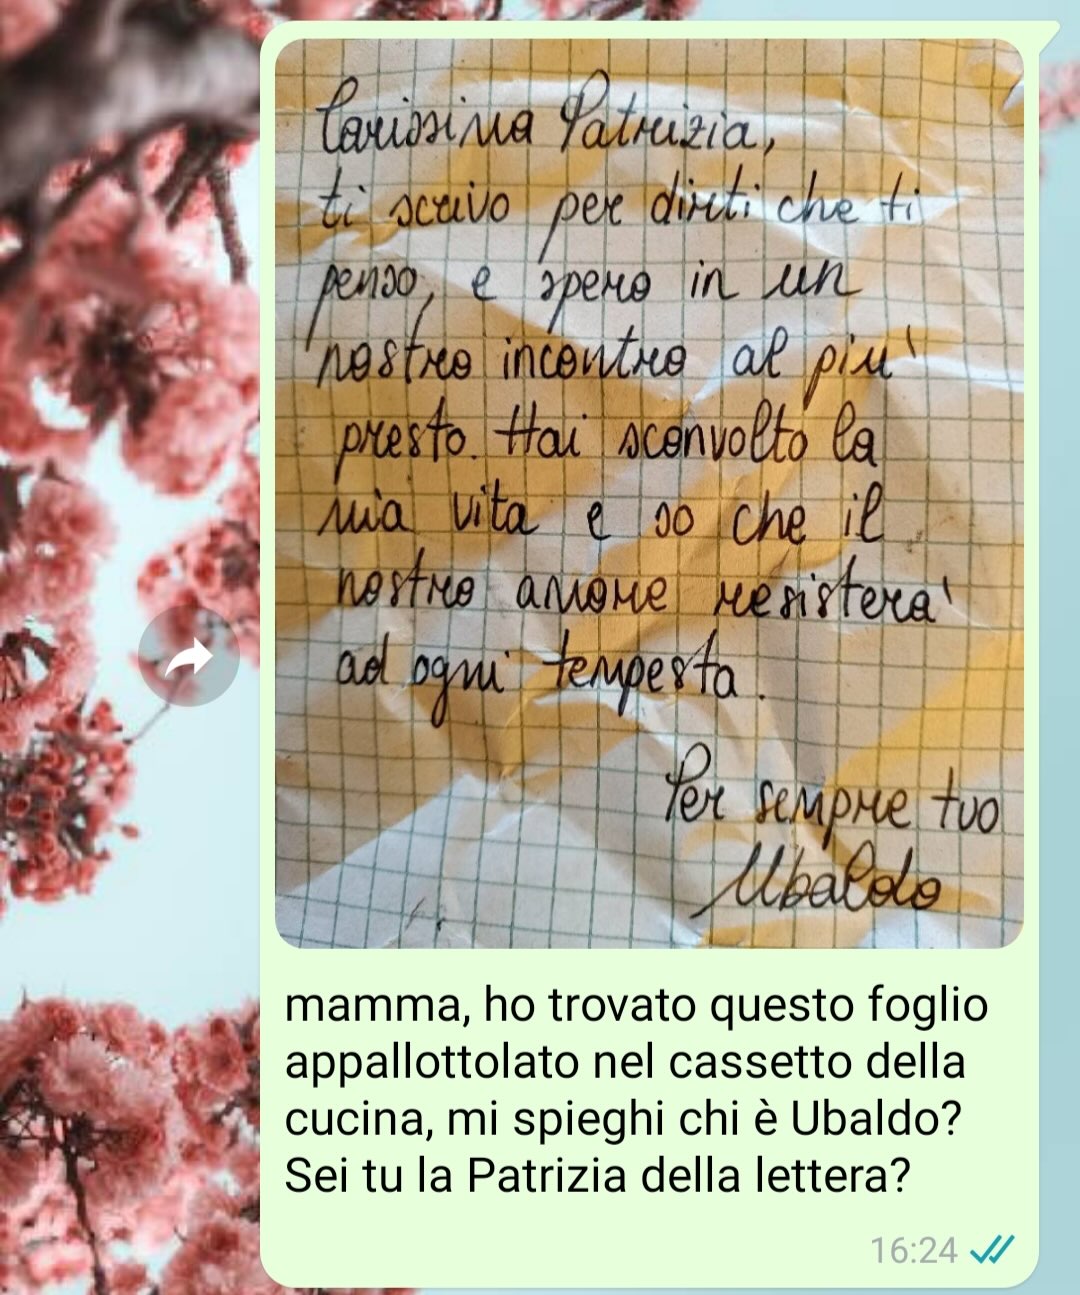 Carissima Patrizia,
ti scrivo per dirti che ti
penso, e spero in un
nostro incontro al piu'
presto. Hai sconvolto la
mia vita e so che il
nostro amore resistera'
ad ogni tempesta.
Per sempre tuo
Ubaldo
mamma, ho trovato questo foglio
appallottolato nel cassetto della
cucina, mi spieghi chi è Ubaldo?
Sei tu la Patrizia della lettera?
16:24